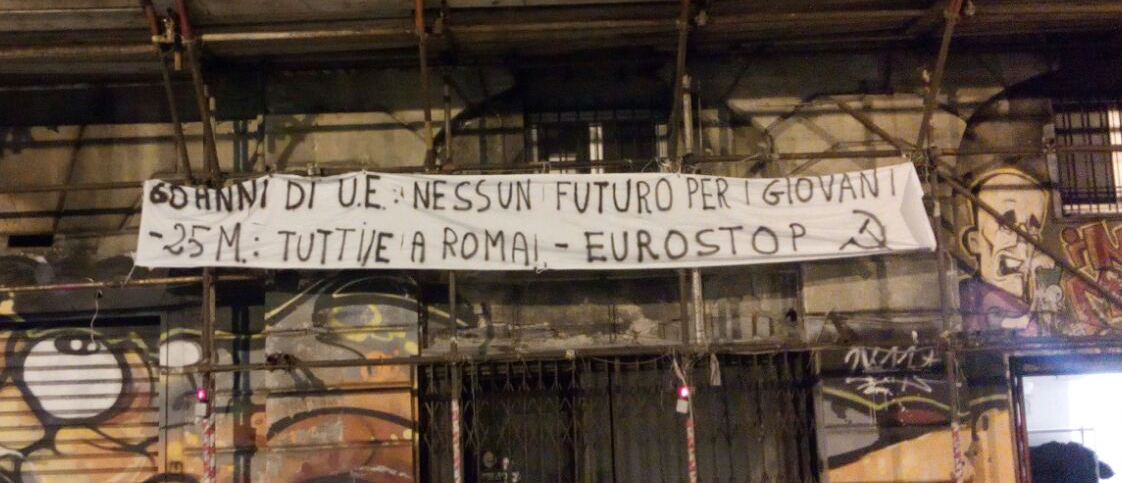 60 ANNI DI U.E.: NESSUN FUTURO PER I GIOVANI
-25 M.: TUTTI/E A ROMA! - EUROSTOP